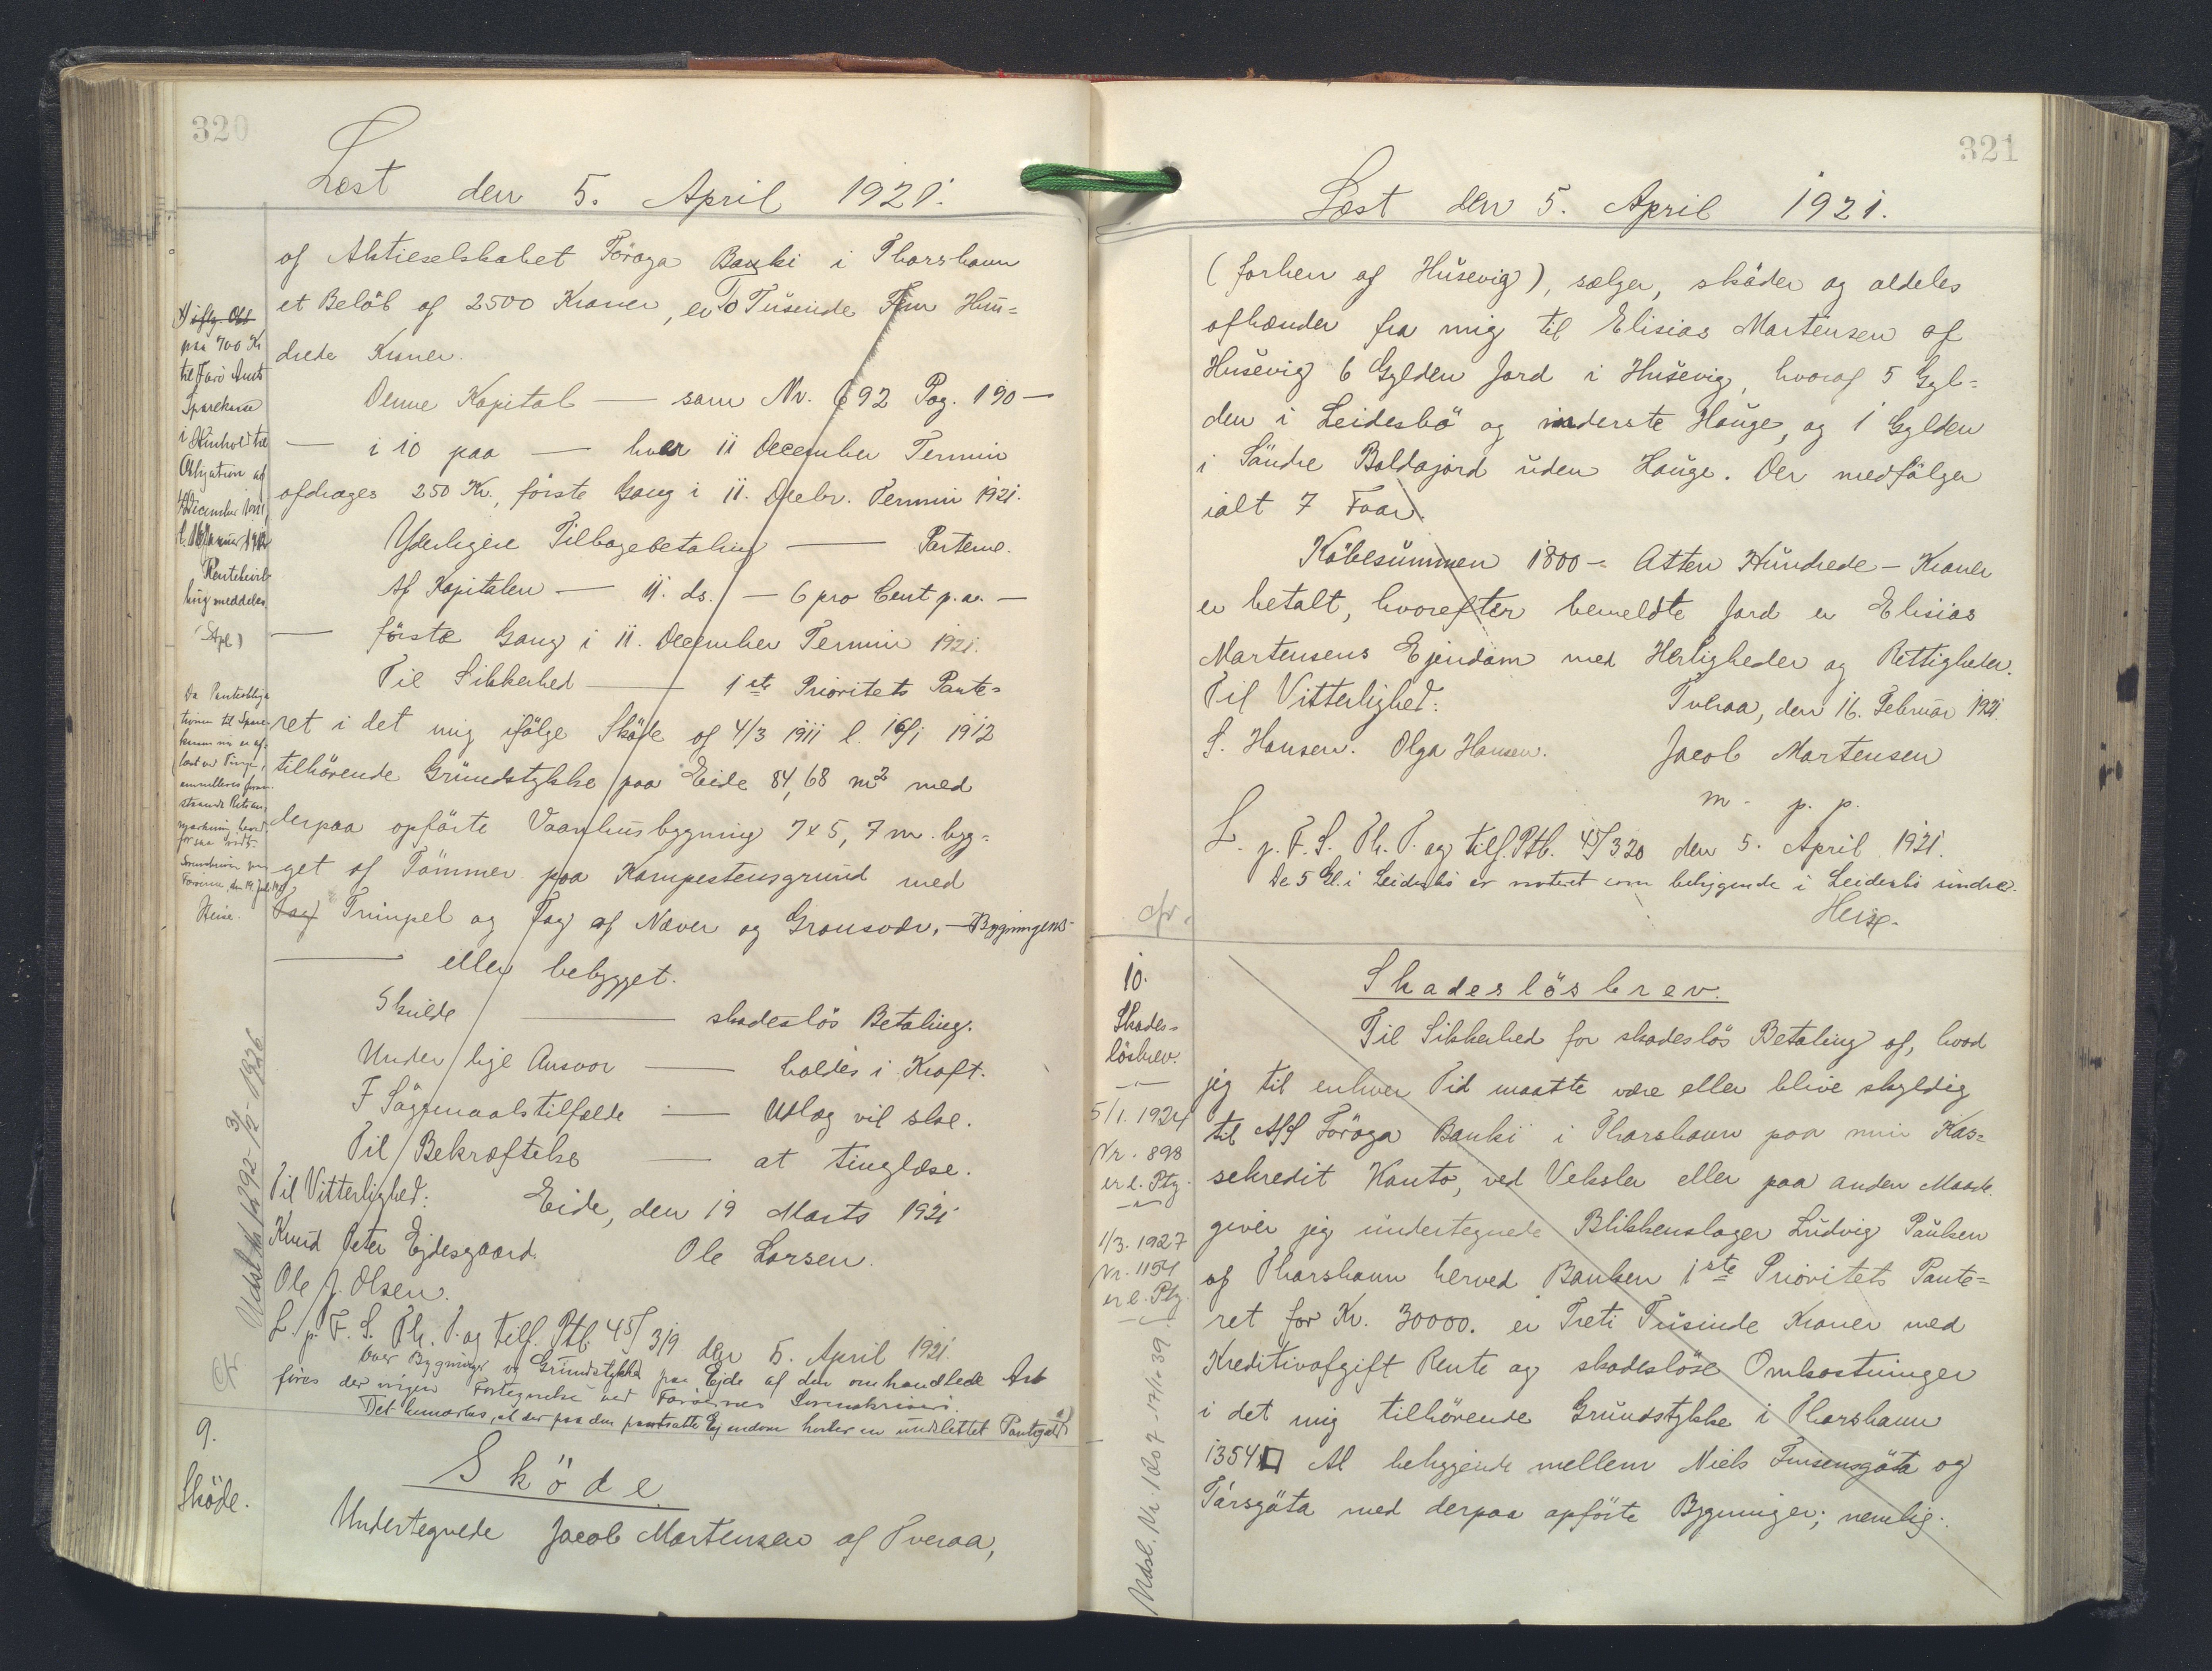 320
Læst den 5. April 1921.
af Aktieselskabet Föroya Banki i Thorshavn
et Beløb af 2500 Kroner, er To Tusinde Fem Hun=
drede Kroner.
Denne Kapital — som Nr. 692 Pag. 190 —
— i 10 paa — hver 11 December Termin
afdrages 250 Kr., förste Gang i 11. Decbr. Termin 1921.
Yderligere Tilbagebetaling — Parterne.
Af Kapitalen — 11. ds. — 6 pro Cent p. a. —
— förste Gang i 11. December Termin 1921.
Til Sikkerhed — 1ste Prioritets Pante=
ret i det mig ifølge Sköde af 4/3 1911 l. 16/1 1912
tilhörende Grundstykke paa Eide 84,68 m2 med
derpaa opförte Vaanhusbygning 7x5,7 m. byg=
get af Tömmer paa Kampestensgrund med
Trimpel og Tag af Næver og Grønsvær, — Bygningens
— eller bebygget.
Skulde — skadeslös Betaling.
Under lige Ansvar — holdes i Kraft.
I Sögsmaalstilfælde — Udlæg vil ske.
Til Bekræftelse — at tinglæse.
Til Vitterlighed:
Eide, den 19 Marts 1921
Knud Peter Ejdesgaard.
Ole Larsen.
Ole J. Olsen.
L. p. F. S. Th. T. og tilf. Ptb. 45/319 den 5. April 1921.
Over Bygninger og Grundstykker paa Ejde af den omhandlede Art
föres der ingen Fortegnelse ved Færöernes Sorenskriveri.
Det bemærkes, at der paa den pantsatte Ejendom hviler en uudslettet Pantegæld
paa 700 Kr
til Færö Amts
Sparekasse
i Henhold til
Obligation af
4 December 1911,
l. 16 Januar 1912
Heise.
Udsl. Nr 1292 - 31/12 - 1926
Cfr.
9.
Sköde.
Sköde
Undertegnede Jacob Martensen af Tveraa,
321
Læst den 5. April 1921.
(forhen af Husevig), sælger, sköder og aldeles
afhænder fra mig til Elisias Martensen af
Husevig 6 Gylden Jord i Husevig, hvoraf 5 Gyl=
den i Leidesbö og inderste Hauge, og 1 Gylden
i Söndre Boldajord uden Hauge. Der medfölger
ialt 7 Faar.
Köbesummen 1800 - Atten Hundrede - Kroner
er betalt, hvorefter bemeldte Jord er Elisias
Martensens Ejendom med Herligheder og Rettigheder.
Til Vitterlighed:
Tveraa, den 16. Februar 1921.
S. Hansen. Olga Hansen.
Jacob Martensen
m. p. p.
L. p. F. S. Th. T. og tilf. Ptb. 45/320 den 5. April 1921.
De 5 Gl. i Leidesbö er noteret som beliggende i Leidesbö indre.
Heise.
cfr.
10.
Skades=
lösbrev.
5/1. 1924
Nr. 898
er l. Ptg.
1/3. 1927
Nr. 1154
er l. Ptg.
Udsl. Nr. 1207 - 17/10 39
Skadeslösbrev.
Til Sikkerhed for skadeslös Betaling af, hvad
jeg til enhver Tid maatte være eller blive skyldig
til A/S Föroya Banki i Thorshavn paa min Kas=
sekredit Konto, ved Veksler eller paa anden Maade.
giver jeg undertegnede Blikkenslager Ludvig Paulsen
af Thorshavn herved Banken 1ste Prioritets Pante=
ret for Kr. 30000. er Treti Tusinde Kroner med
Kreditivafgift Rente og skadeslöse Omkostninger
i det mig tilhörende Grundstykke i Thorshavn
1354 □ Al beliggende mellem Niels Finsensgöta og
Tórsgöta med derpaa opförte Bygninger; nemlig: